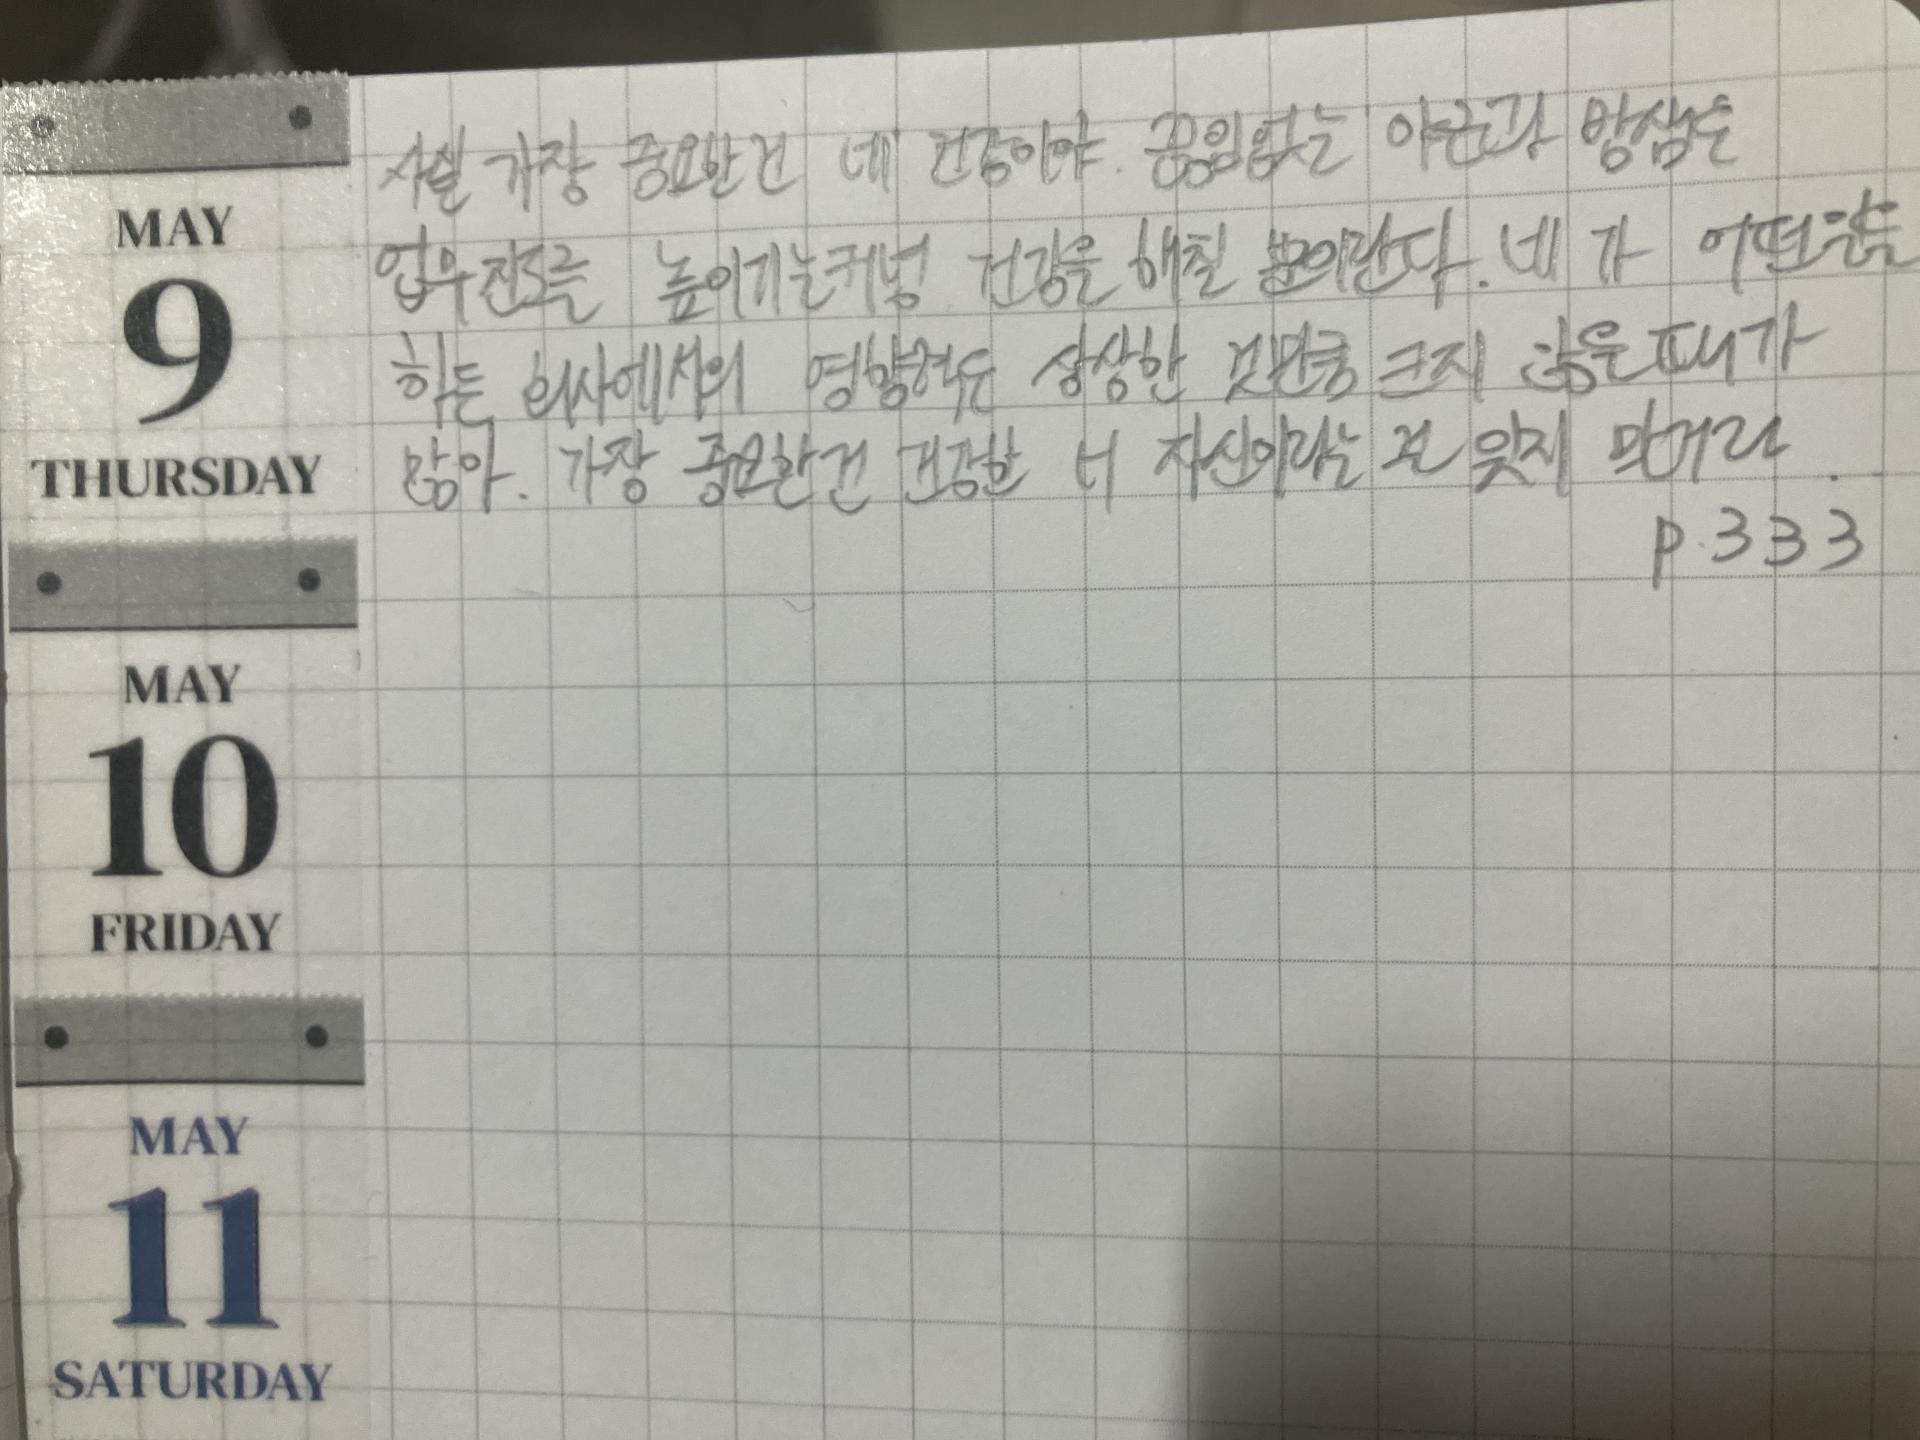 MAY
9
THURSDAY
사실 가장 중요한건 네 건강이야. 끊임없는 야근과 밤샘은
업무진도를 높이기는커녕 건강을 해칠 뿐이란다. 네가 어떤
힘든 회사에서의 영향력은 상상한 것만큼 크지 않은때가
많아. 가장 중요한건 건강한 너 자신이라는 걸 잊지 말거라.
p.333
MAY
10
FRIDAY
MAY
11
SATURDAY